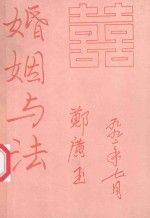 婚姻与法
囍
鄭廣玉
一九九二年七月